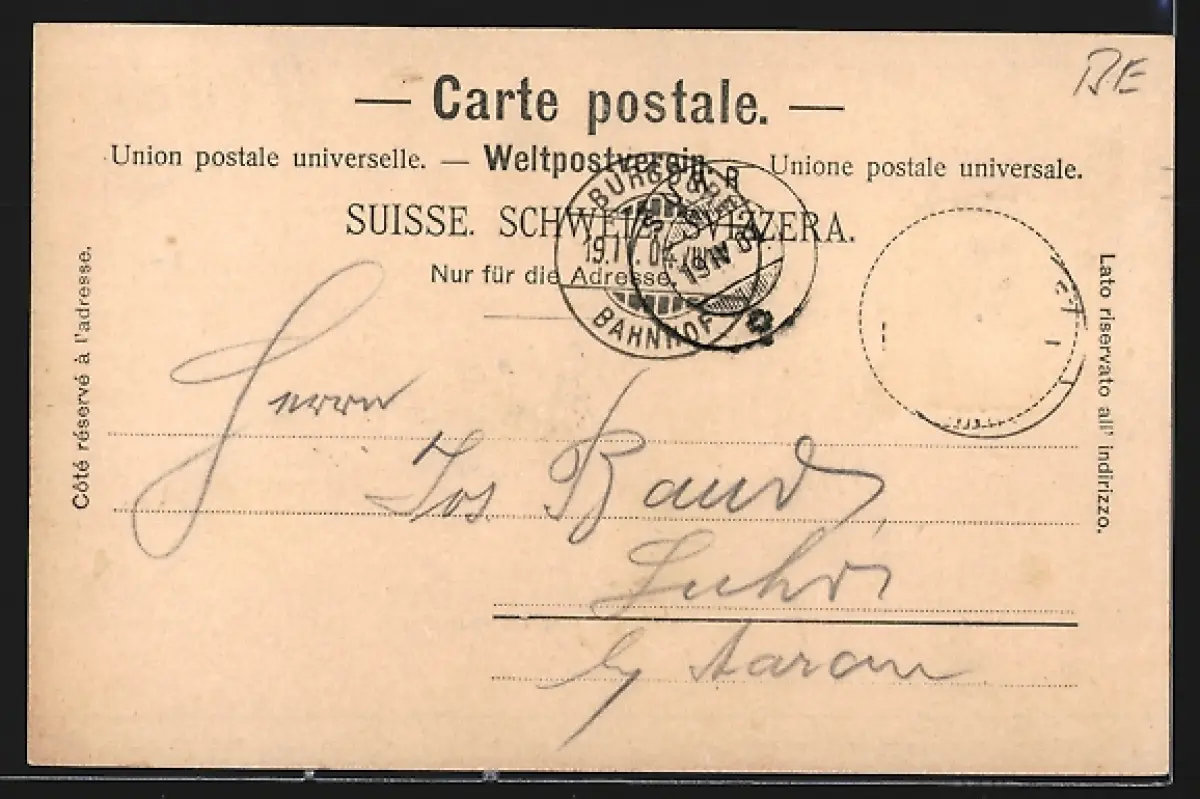 BE
— Carte postale. —
Union postale universelle. — Weltpostverein. — Unione postale universale.
SUISSE. SCHWEIZ. SVIZZERA.
Nur für die Adresse.
BURGDORF
19.IV.04
BAHNHOF
19 IV 04
Côté réservé à l'adresse.
Lato riservato all' indirizzo.
Herrn
Jos.
Aarau